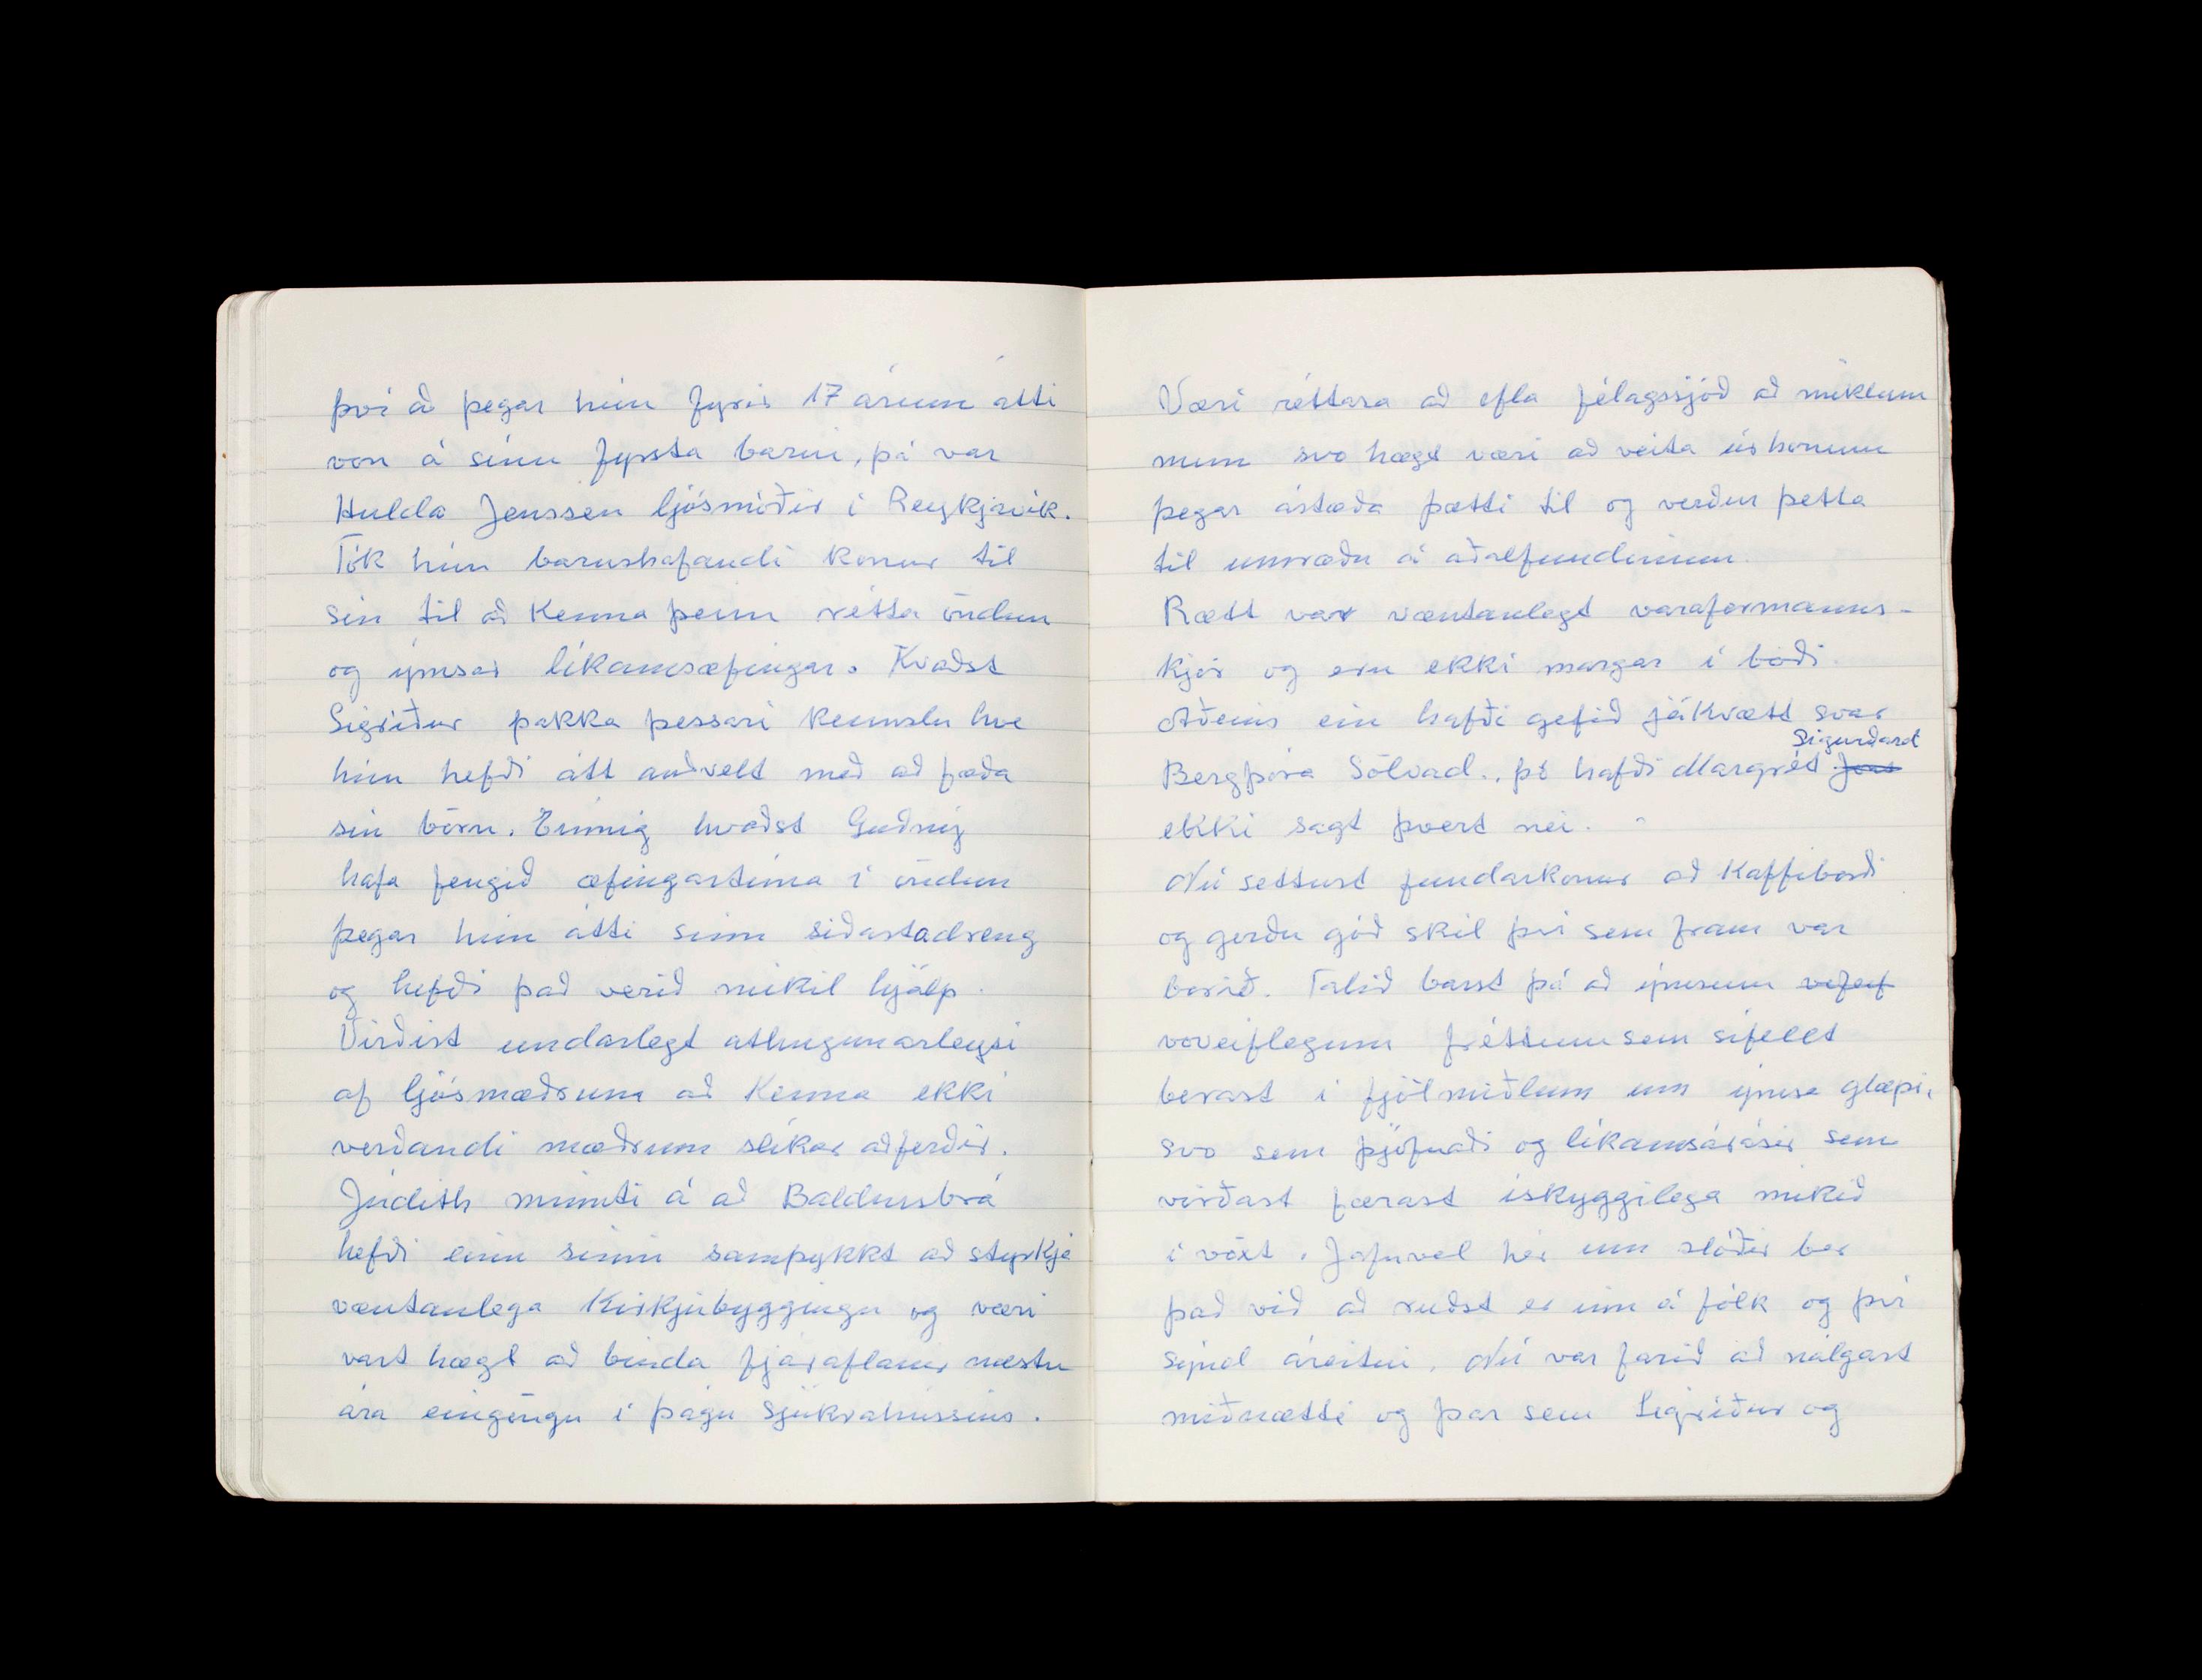 því að þegar hún fyrir 17 árum átti
von á sínu fyrsta barni, þá var
Hulda Jenssen ljósmóðir í Reykjavík.
Tók hún barnshafandi konur til
sín til að kenna þeim rétta öndun
og ýmsar líkamsæfingar. Kvaðst
Sigríður þakka þessari kennslu hve
hún hefði átt auðvelt með að fæða
sín börn. Einnig kvaðst Guðný
hafa fengið æfingartíma í öndun
þegar hún átti sinn síðastadreng
og hefði það verið mikil hjálp.
Virðist undarlegt athugunarleysi
af ljósmæðrum að kenna ekki
verðandi mæðrum slíkar aðferðir.
Júdith minnti á að Baldursbrá
hefði einu sinni samþykkt að styrkja
væntanlega kirkjubyggingu og væri
vart hægt að binda fjáraflanir næstu
ára eingöngu í þágu Sjúkrahússins.
Væri réttara að efla félagssjóð að miklum
mun svo hægt væri að veita úr honum
þegar ástæða þætti til og verður þetta
til umræðu á aðalfundinum.
Rætt var væntanlegt varaformanns-
kjör og eru ekki margar í boði.
Aðeins ein hafði gefið jákvætt svar
Sigurðard
Bergþóra Sölvad., þó hafði Margrét Jons
ekki sagt þvert nei.
Nú settust fundarkonur að kaffiborði
og gerðu góð skil því sem fram var
borið. Talið barst þá að ýmsum
voveiflegum fréttum sem sífellt
berast í fjölmiðlum um ýmse glæpi,
svo sem þjófnaði og líkamsárásir sem
virðast færast ískyggilega mikið
í vöxt. Jafnvel hér um slóðir ber
það við að ruðst er inn á fólk og því
sýnd áreitni. Nú var farið að nálgast
miðnætti og þar sem Sigríður og